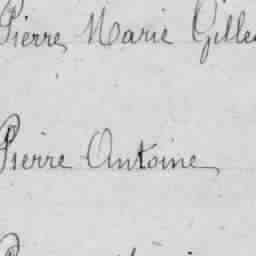 Pierre Marie Gilles
Pierre Antoine